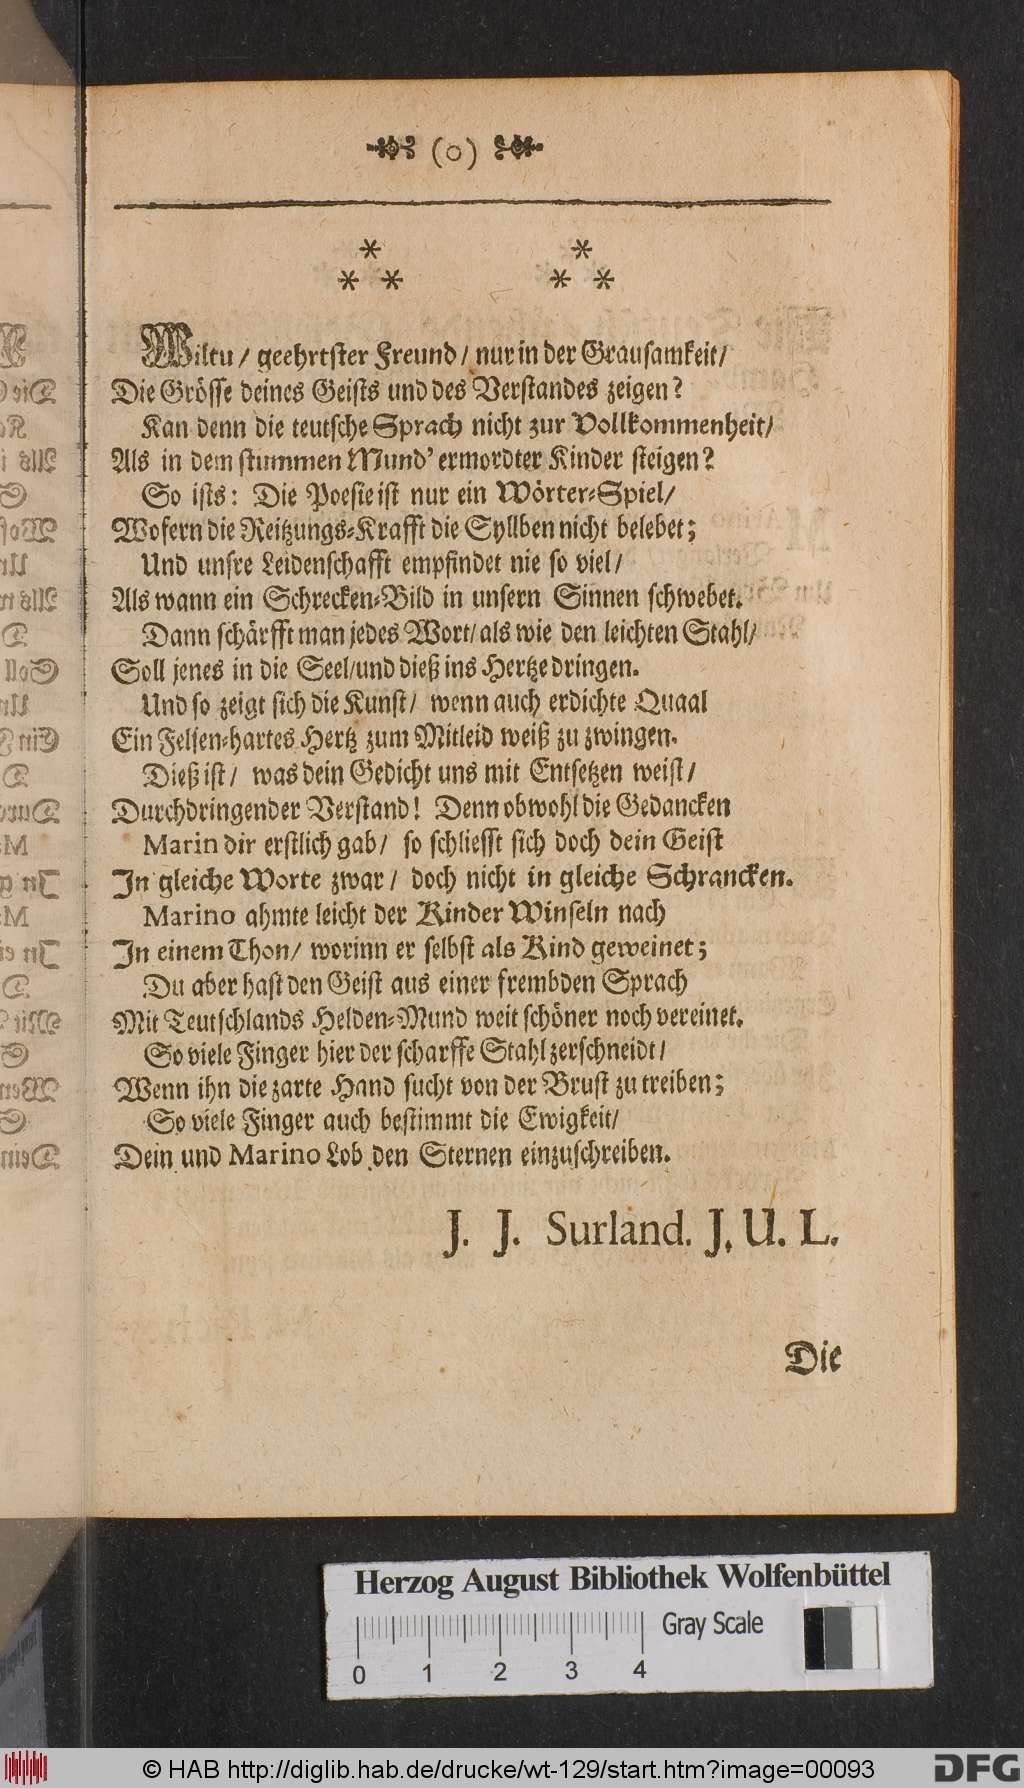 (o)
* *
* * * *
Wiltu / geehrtster Freund / nur in der Grausamkeit /
Die Grösse deines Geists und des Verstandes zeigen?
Kan denn die teutsche Sprach nicht zur Vollkommenheit /
Als in dem stummen Mund' ermordter Kinder steigen?
So ists: Die Poesie ist nur ein Wörter-Spiel /
Wofern die Reitzungs-Krafft die Syllben nicht belebet;
Und unsre Leidenschafft empfindet nie so viel /
Als wann ein Schrecken-Bild in unsern Sinnen schwebet.
Dann schärfft man jedes Wort / als wie den leichten Stahl /
Soll jenes in die Seel / und dieß ins Hertze dringen.
Und so zeigt sich die Kunst / wenn auch erdichte Quaal
Ein Felsen-hartes Hertz zum Mitleid weiß zu zwingen.
Dieß ist / was dein Gedicht uns mit Entsetzen weist /
Durchdringender Verstand! Denn obwohl die Gedancken
Marin dir erstlich gab / so schliesst sich doch dein Geist
In gleiche Worte zwar / doch nicht in gleiche Schrancken.
Marino ahmte leicht der Kinder Winseln nach
In einem Thon / worinn er selbst als Kind geweinet;
Du aber hast den Geist aus einer frembden Sprach
Mit Teutschlands Helden-Mund weit schöner noch vereinet.
So viele Finger hier der scharffe Stahl zerschneidt /
Wenn ihn die zarte Hand sucht von der Brust zu treiben;
So viele Finger auch bestimmt die Ewigkeit /
Dein und Marino Lob den Sternen einzuschreiben.
J. J. Surland. J. U. L.
Die
Herzog August Bibliothek Wolfenbüttel
Gray Scale
0 1 2 3 4
© HAB http://diglib.hab.de/drucke/wt-129/start.htm?image=00093
DFG